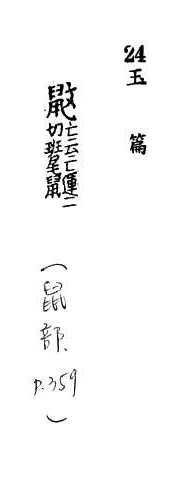 24
玉篇
鼤
亡云亡運二
切班尾鼠
(鼠部 p.359)